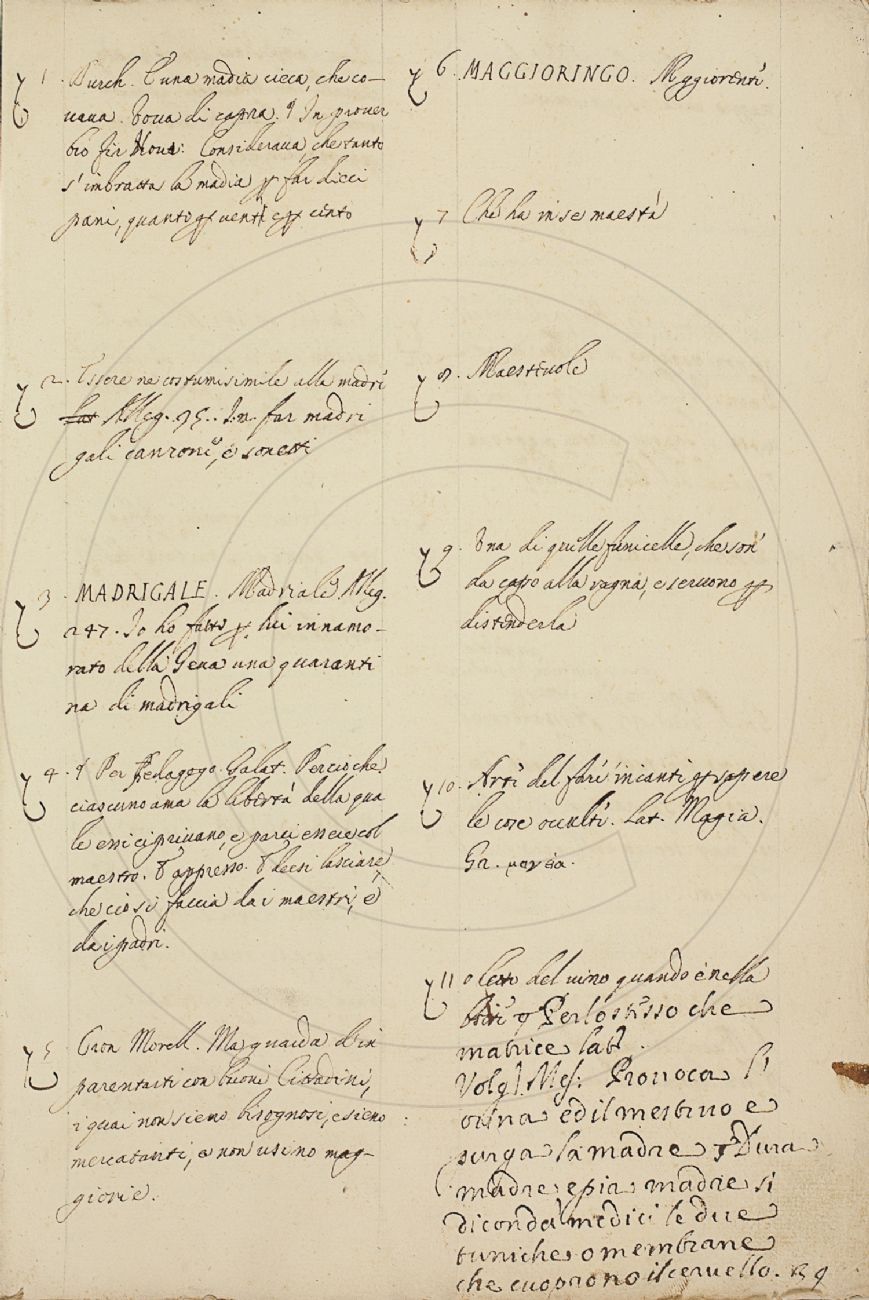 1. Burch. E una madia cieca, che co-
vava. Vova di capra. ¶ In prover
bio fir Nova: Considerava, che tanto
s'imbratta la madia p far dieci
pani, quanti p venti e p cento
2. Essere ne costumi simile alla madri
Alleg. 95. In far madri
gali canzoni, e sonetti
3. MADRIGALE. Madriale Alleg.
247. Io ho fatto p. lui innamo-
rato della Geva una quaranti
na di madrigali
4. ¶ Per Pedagogo. Galat. Percioche
ciascuno ama la libertà della qua
le essi ci privano, e parci essere col
maestro. E appresso. E deesi lasciare
che cio si faccia da i maestri, e
da i padri.
5. Cron Morell. Ma guarda d'in
parentarti con buoni Cittadini,
i quai non sieno bisognosi, e sieno
mercatanti, e non usino mag-
giorie.
6. MAGGIORINGO. Maggiorenti.
7 Che ha in se maestà
8. Maestevole
9. Una di quelle funicelle, che son'
da capo alla ragna, e servono p
distenderla
10. Arte del fare incanti p sapere
le cose occulte. Lat. Magia.
Gr. μαγεία.
11 o letto del vino quando è nella
botte ¶ Per lo stesso che
matrice lat.
Volg. Mes. Provoca l'
orina ed il mestruo e
purga la madre ¶ Dura
madre, e pia madre si
dicon da' medici le due
tuniche o membrane
che cuoprono il cervello.